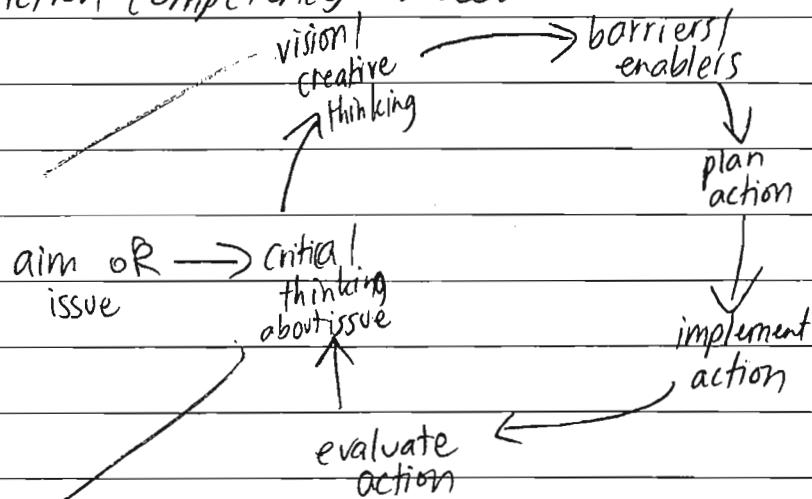 vision/
creative
thinking
barriers/
enablers
plan
action
aim OR
issue
critical
thinking
about issue
implement
action
evaluate
action